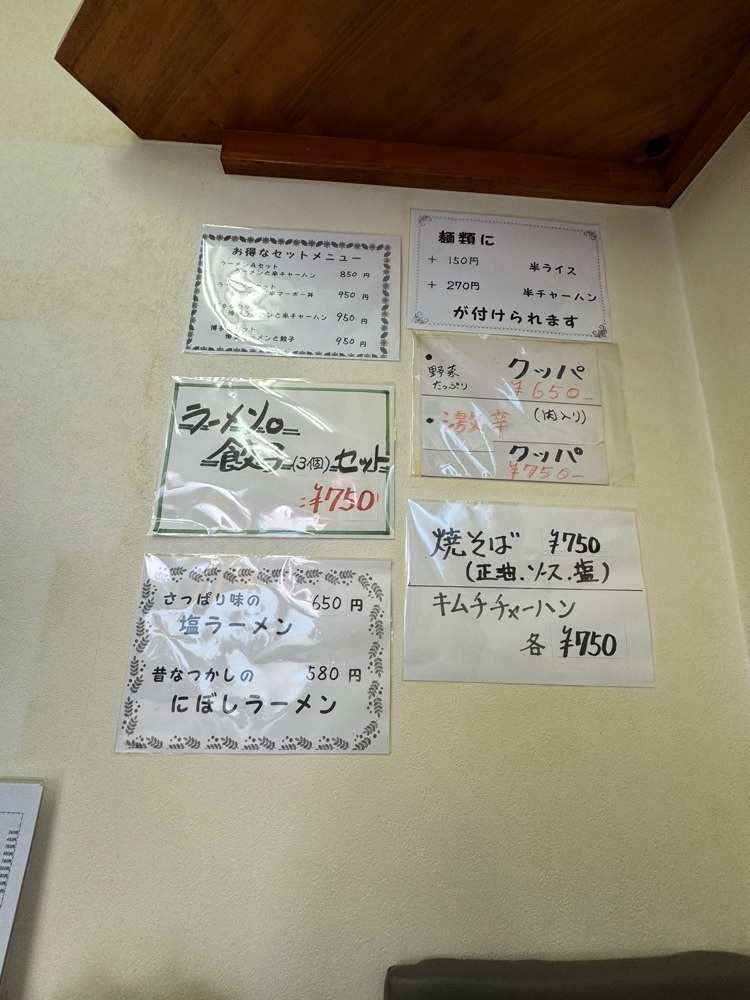 お得なセットメニュー
ラーメンAセット
ラーメンと半チャーハン 850 円
半マーボー丼 950 円
メンと半チャーハン 950 円
博多 セット
メンと餃子 950 円
麺類に
+ 150円 半ライス
+ 270円 半チャーハン
が付けられます
ラーメン。
餃子(3個)セット
¥750
・野菜たっぷり クッパ
¥650-
・激辛 (肉入り)
クッパ
¥750-
さっぱり味の 650 円
塩ラーメン
昔なつかしの 580 円
にぼしラーメン
焼そば ¥750
(正油.ソース.塩)
キムチチャーハン
各 ¥750